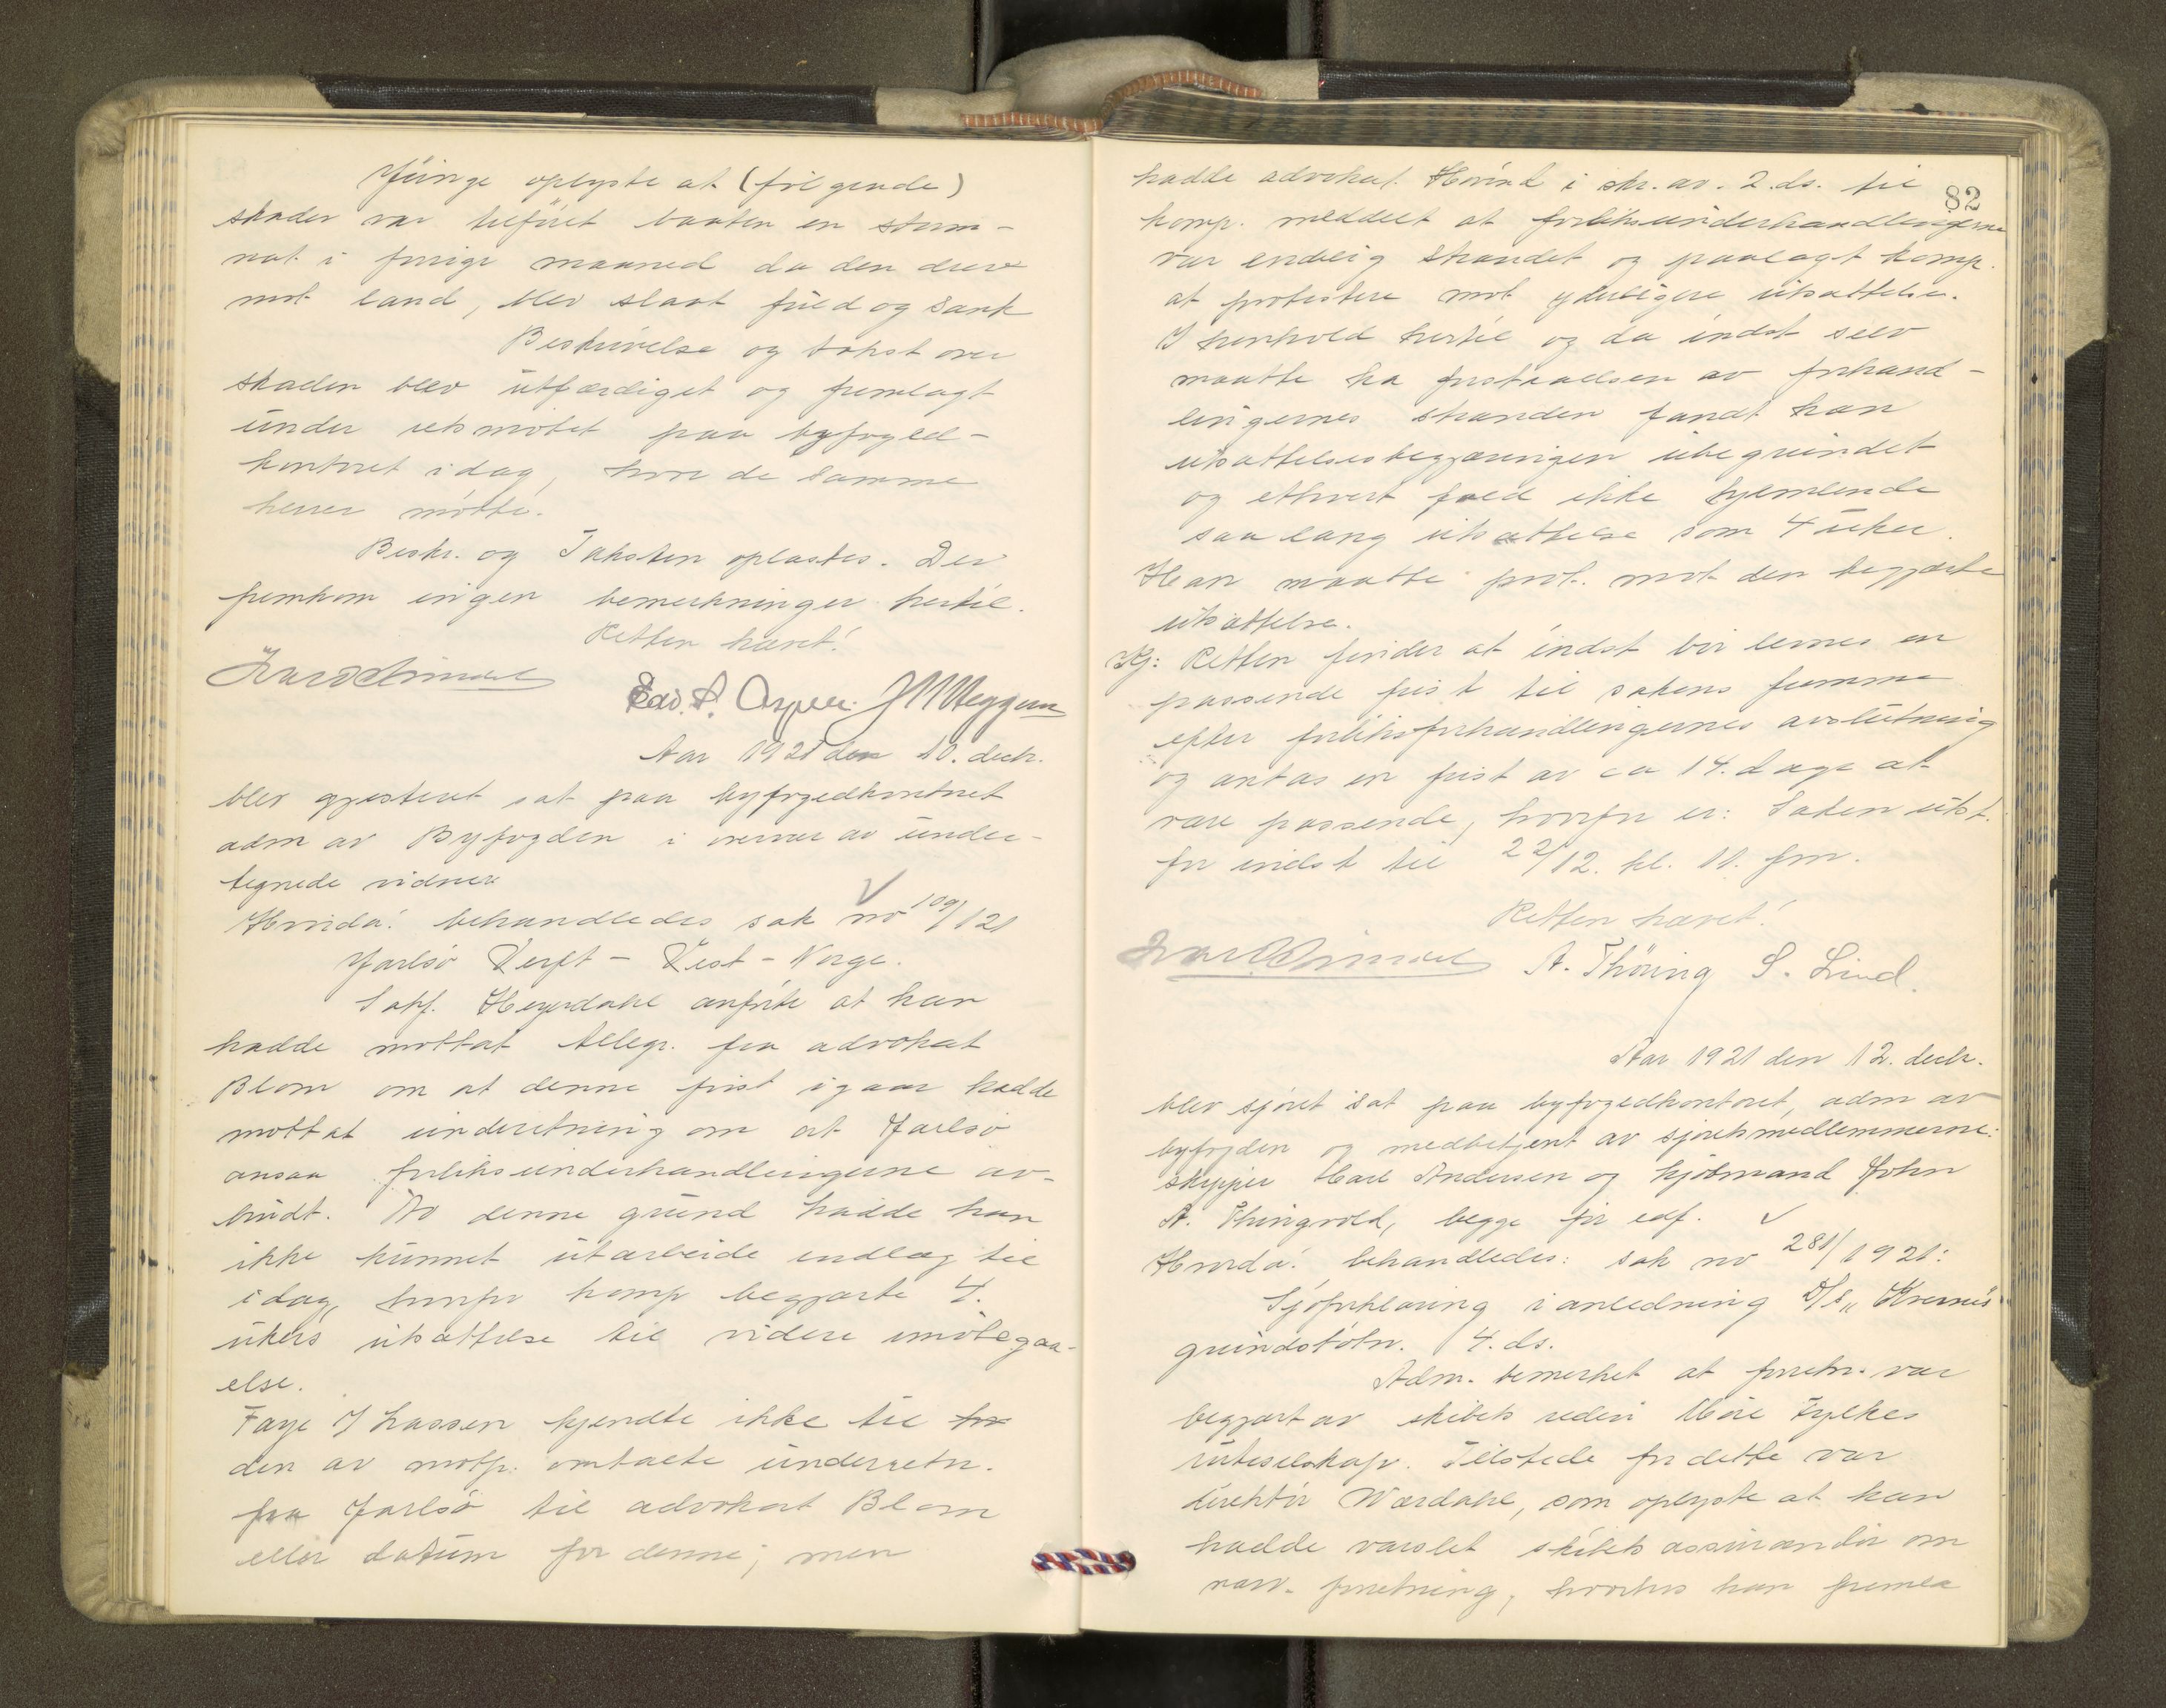 Yunge oplyste at (følgende)
skader var tilføiet baaten en storm-
nat i forrige maaned da den drev
mot land, blev slaat fuld og sank
Beskrivelse og takst over
skaden blev utfærdiget og fremlagt
under retsmøtet paa byfoged-
kontoret idag, hvor de samme
herrer møtte.
Beskr. og Taksten oplæstes. Der
fremkom ingen bemerkninger hertil.
Retten hævet!
Edv. S. Asper. J M Heggem
Aar 1921 den 10. decbr.
blev gjesteret sat paa byfogedkontoret
adm av Byfogden i overvær av under-
tegnede vidner
Hvorda! behandledes sak no 109/121
Jarlsø Verft - Vest-Norge.
Sakf. Heyerdahl anførte at han
hadde mottat telegr. fra advokat
Blom om at denne først igaar hadde
mottat underretning om at Jarlsø
ansaa forliksunderhandlingerne av-
brudt. Av denne grund hadde han
ikke kunnet utarbeide indlæg til
idag, hvorfor komp begjærte 4.
ukers utsættelse til videre imøtegaa-
else.
Faye Hassen kjendte ikke til
den av motp. omtalte underretn.
fra Jarlsø til advokat Blom
eller datum for denne; men
82
hadde advokat Hovind i skr. av. 2. ds. til
komp. meddelt at forliksunderhandlingerne
var endelig strandet og paalagt komp.
at protestere mot yderligere utsættelse.
I henhold hertil og da indst selv
maatte ha forstaaelsen av forhand-
lingernes stranden fandt han
utsættelsesbegjæringen ubegrundet
og ethvert fald ikke hjemlende
saa lang utsættelse som 4 uker.
Han maatte prot. mot den begjærte
utsættelse.
Kj: Retten finder at indst bør levnes en
passende frist til sakens fremme
efter forliksforhandlingernes avslutning
og antas en frist av ca 14. dage at
være passende, hvorfor er: Saken utst.
for indst til 22/12. kl. 11. fm.
Retten hævet!
A. Thöring S. Lind.
Aar 1921 den 12. decbr.
blev sjøret sat paa byfogedkontoret, adm av
byfogden og medbetjent av sjøretsmedlemmerne:
skipper Karl Andersen og kjøbmand John
A. Thingvold, begge før edf.
Hvorda! behandledes: sak no 281/1921:
Sjøforklaring i anledning D/s „Kvernes
grundstøtn. 4. ds.
Adm. bemerket at forretn. var
begjært av skibets rederi Møre Fylkes
ruteselskap. Tilstede for dette var
direktør Wærdahl, som oplyste at han
hadde varslet skibets assurandør om
nærv. forretning, hvorhos han fremla